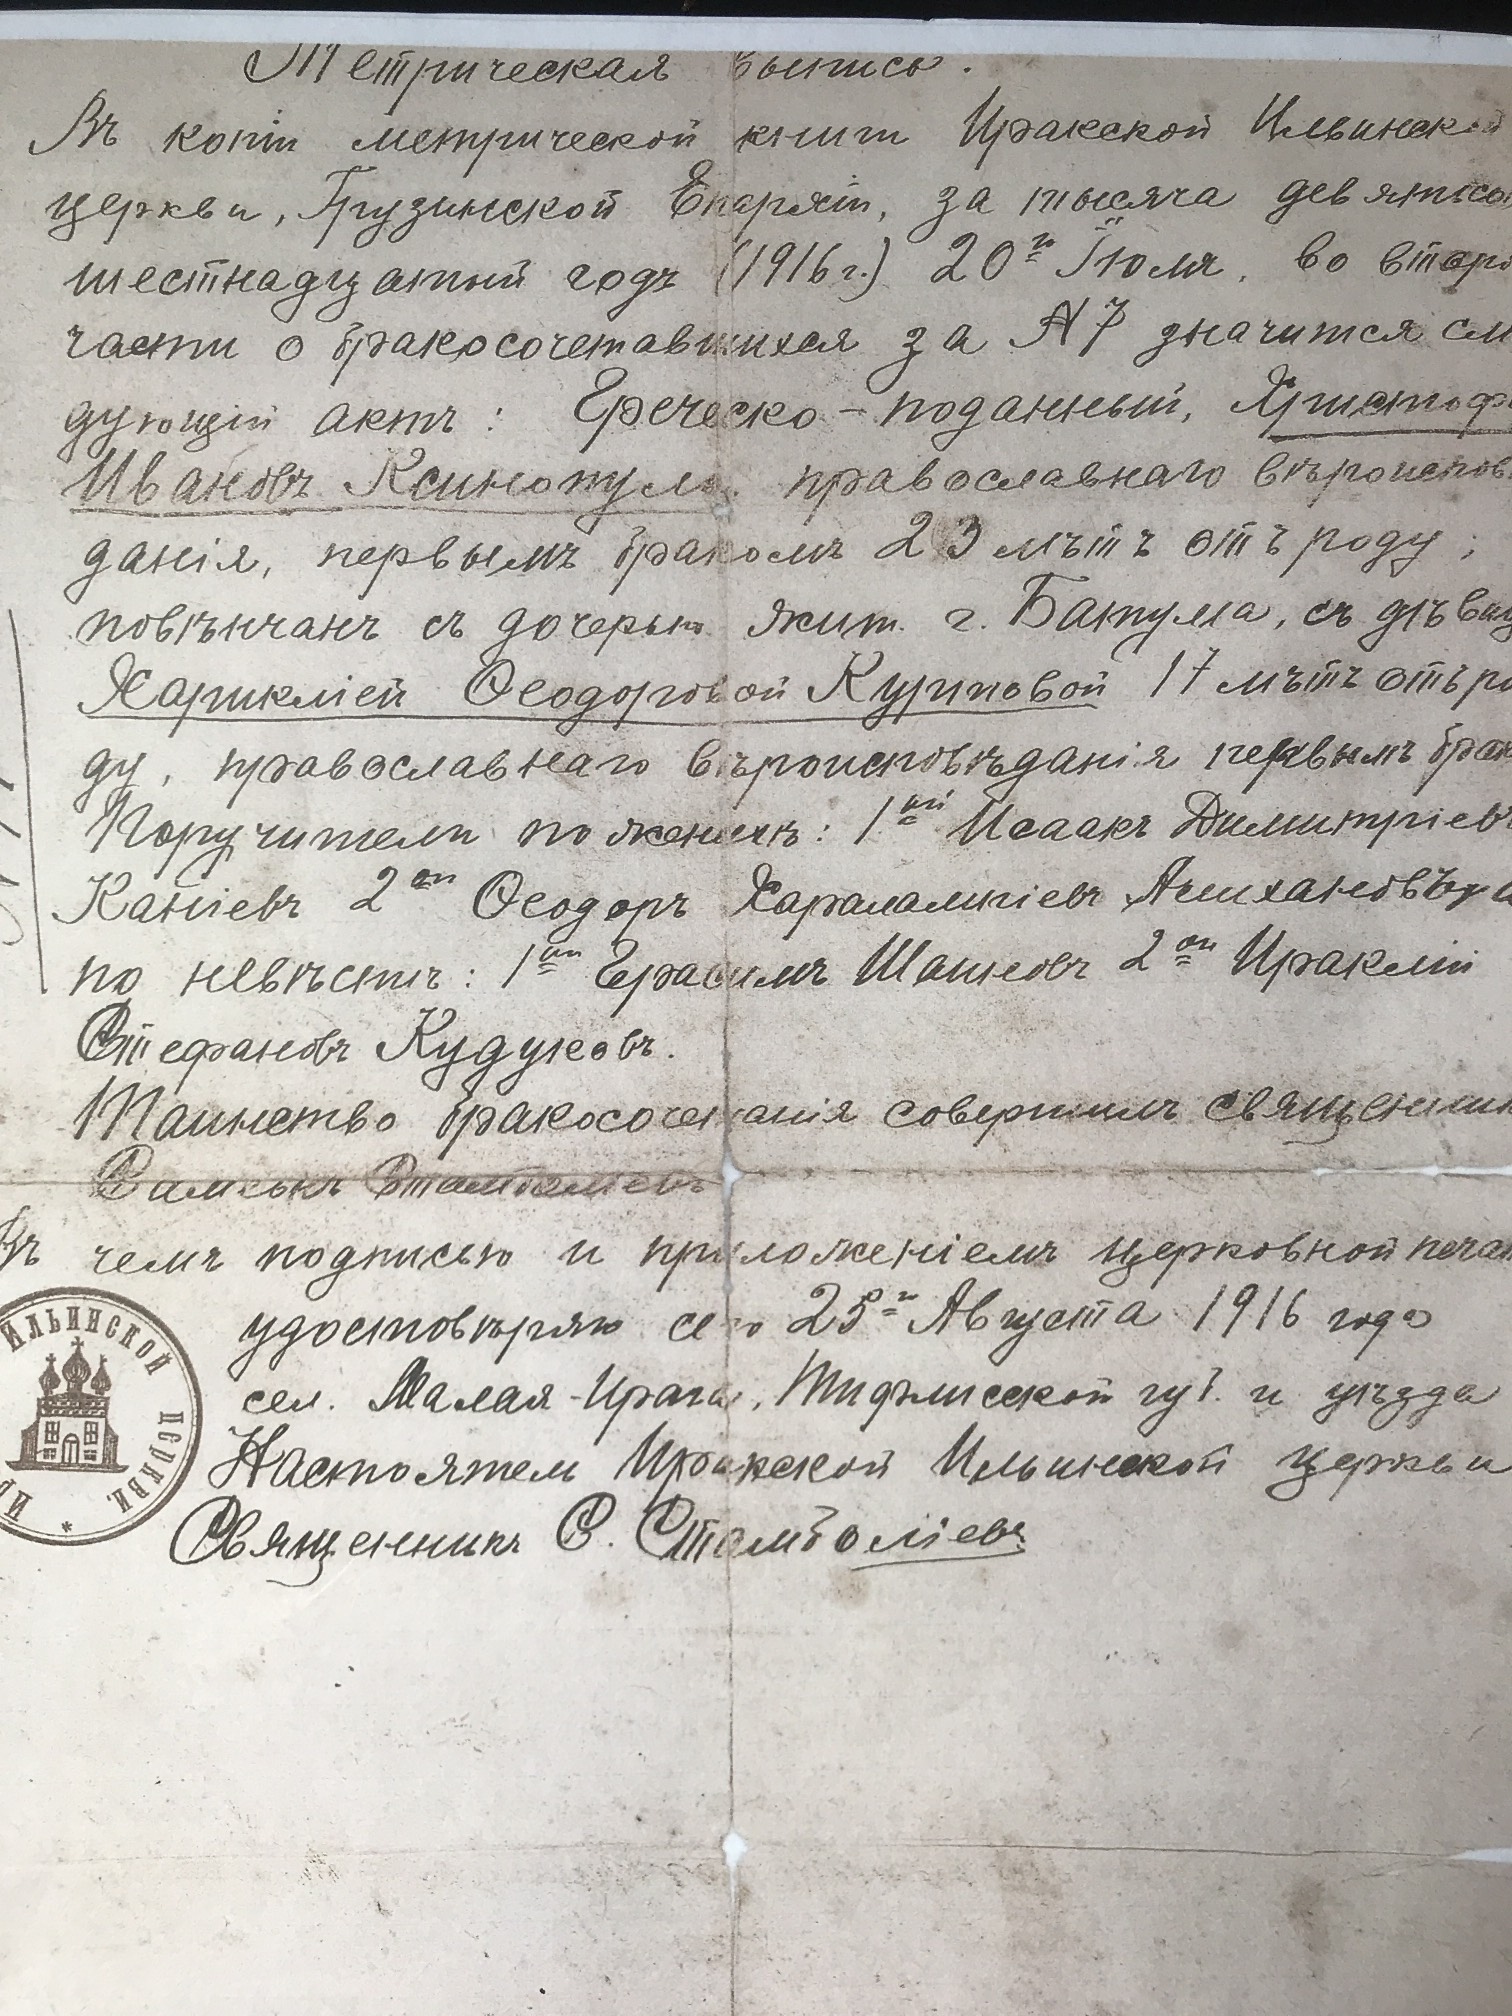 Метрическая выпись.
Въ копіи метрической книги Иракской Ильинской
церкви, Грузинской Епархіи, за тысяча девятьсот
шестнадцатый годъ (1916 г.) 20го Іюля, во второ
части о бракосочетавшихся за №7 значится слѣ
дующій актъ: Греческо-поданный, Христофо
Ивановъ Ксинопуло, православнаго вѣроиспов
данія, первымъ бракомъ 23 лѣтъ отъ роду;
повѣнчанъ съ дочерью жит. г. Батума, съ дѣвиц
Хариклией Ѳеодоровой Куриповой 17 лѣтъ отъ ро
ду, православнаго вѣроисповѣданія первымъ брак
Поручители по женихѣ: 1ый Исаакъ Димитріевъ
Каніевъ 2ой Ѳеодоръ Харалампіевъ
по невѣстѣ: 1ый Герасимъ Шаиновъ 2ой Ираклій
Стефановъ Кудуковъ.
Таинство бракосочетанія совершилъ священник
Стамболіевъ
Въ чемъ подписью и приложеніемъ церковной печат
удостовѣряю сего 25го Августа 1916 года
сел. Малая-Ирага, Тифлисской губ. и уѣзда
Настоятель Иракской Ильинской церкви
Священникъ С. Стамболіевъ
ИР
ИЛЬИНСКОЙ ЦЕРКВИ *